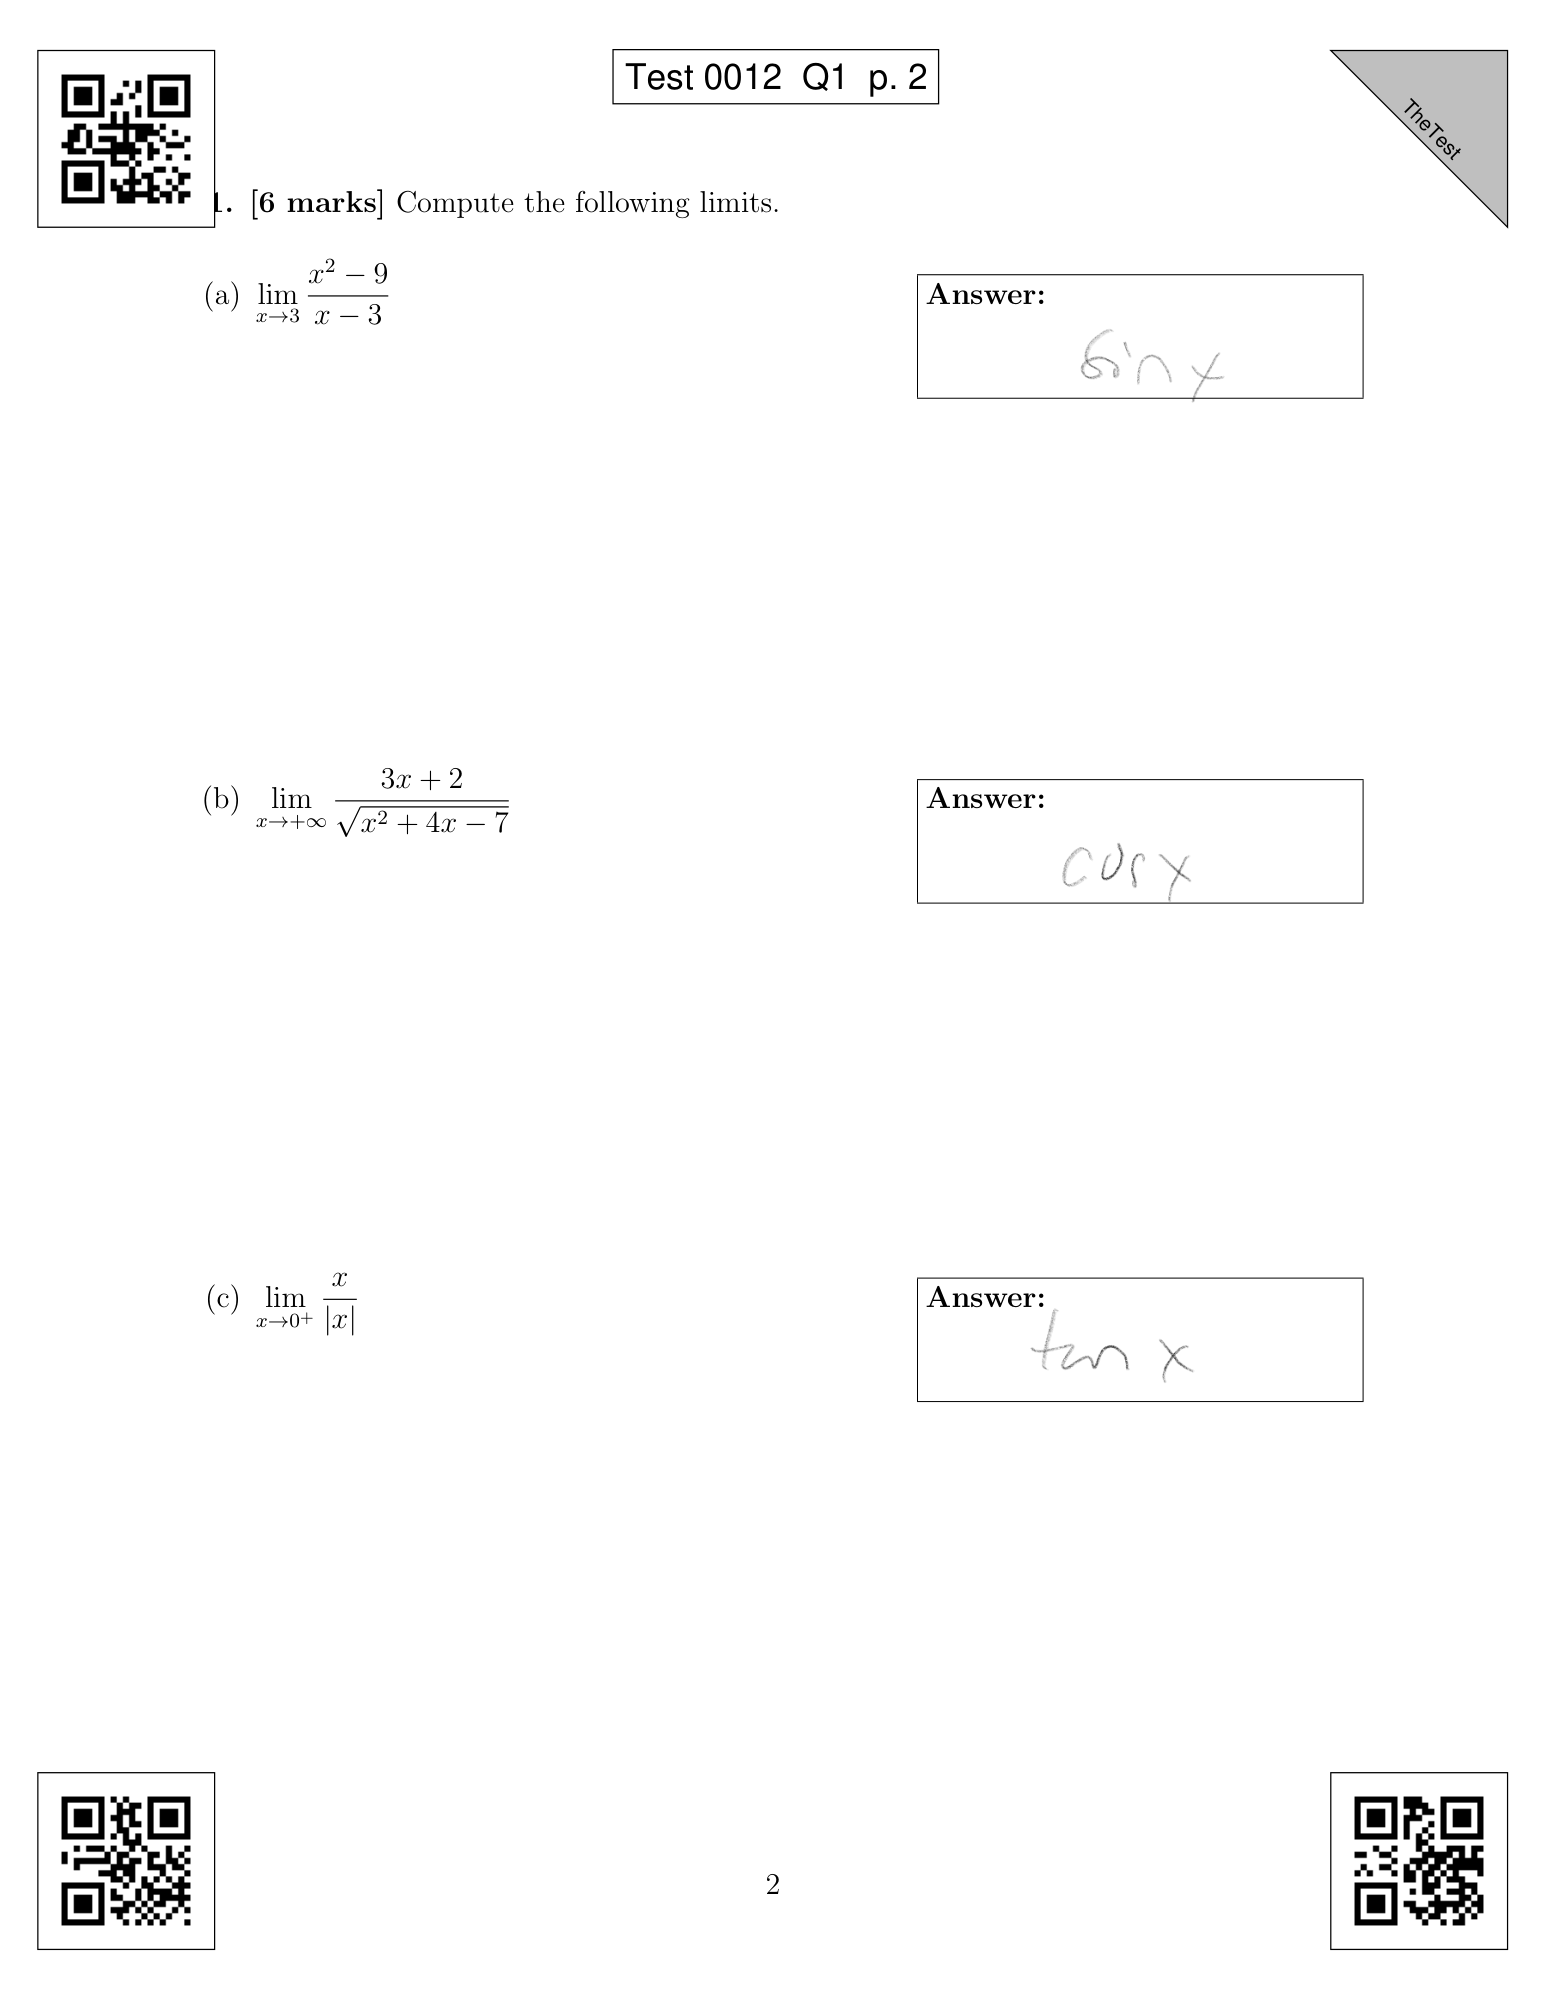 Test 0012 Q1 p. 2
TheTest
1. [6 marks] Compute the following limits.
(a) lim x→3 (x² − 9)/(x − 3)
Answer:
sin x
(b) lim x→+∞ (3x + 2)/√(x² + 4x − 7)
Answer:
cos x
(c) lim x→0⁺ x/|x|
Answer:
tan x
2